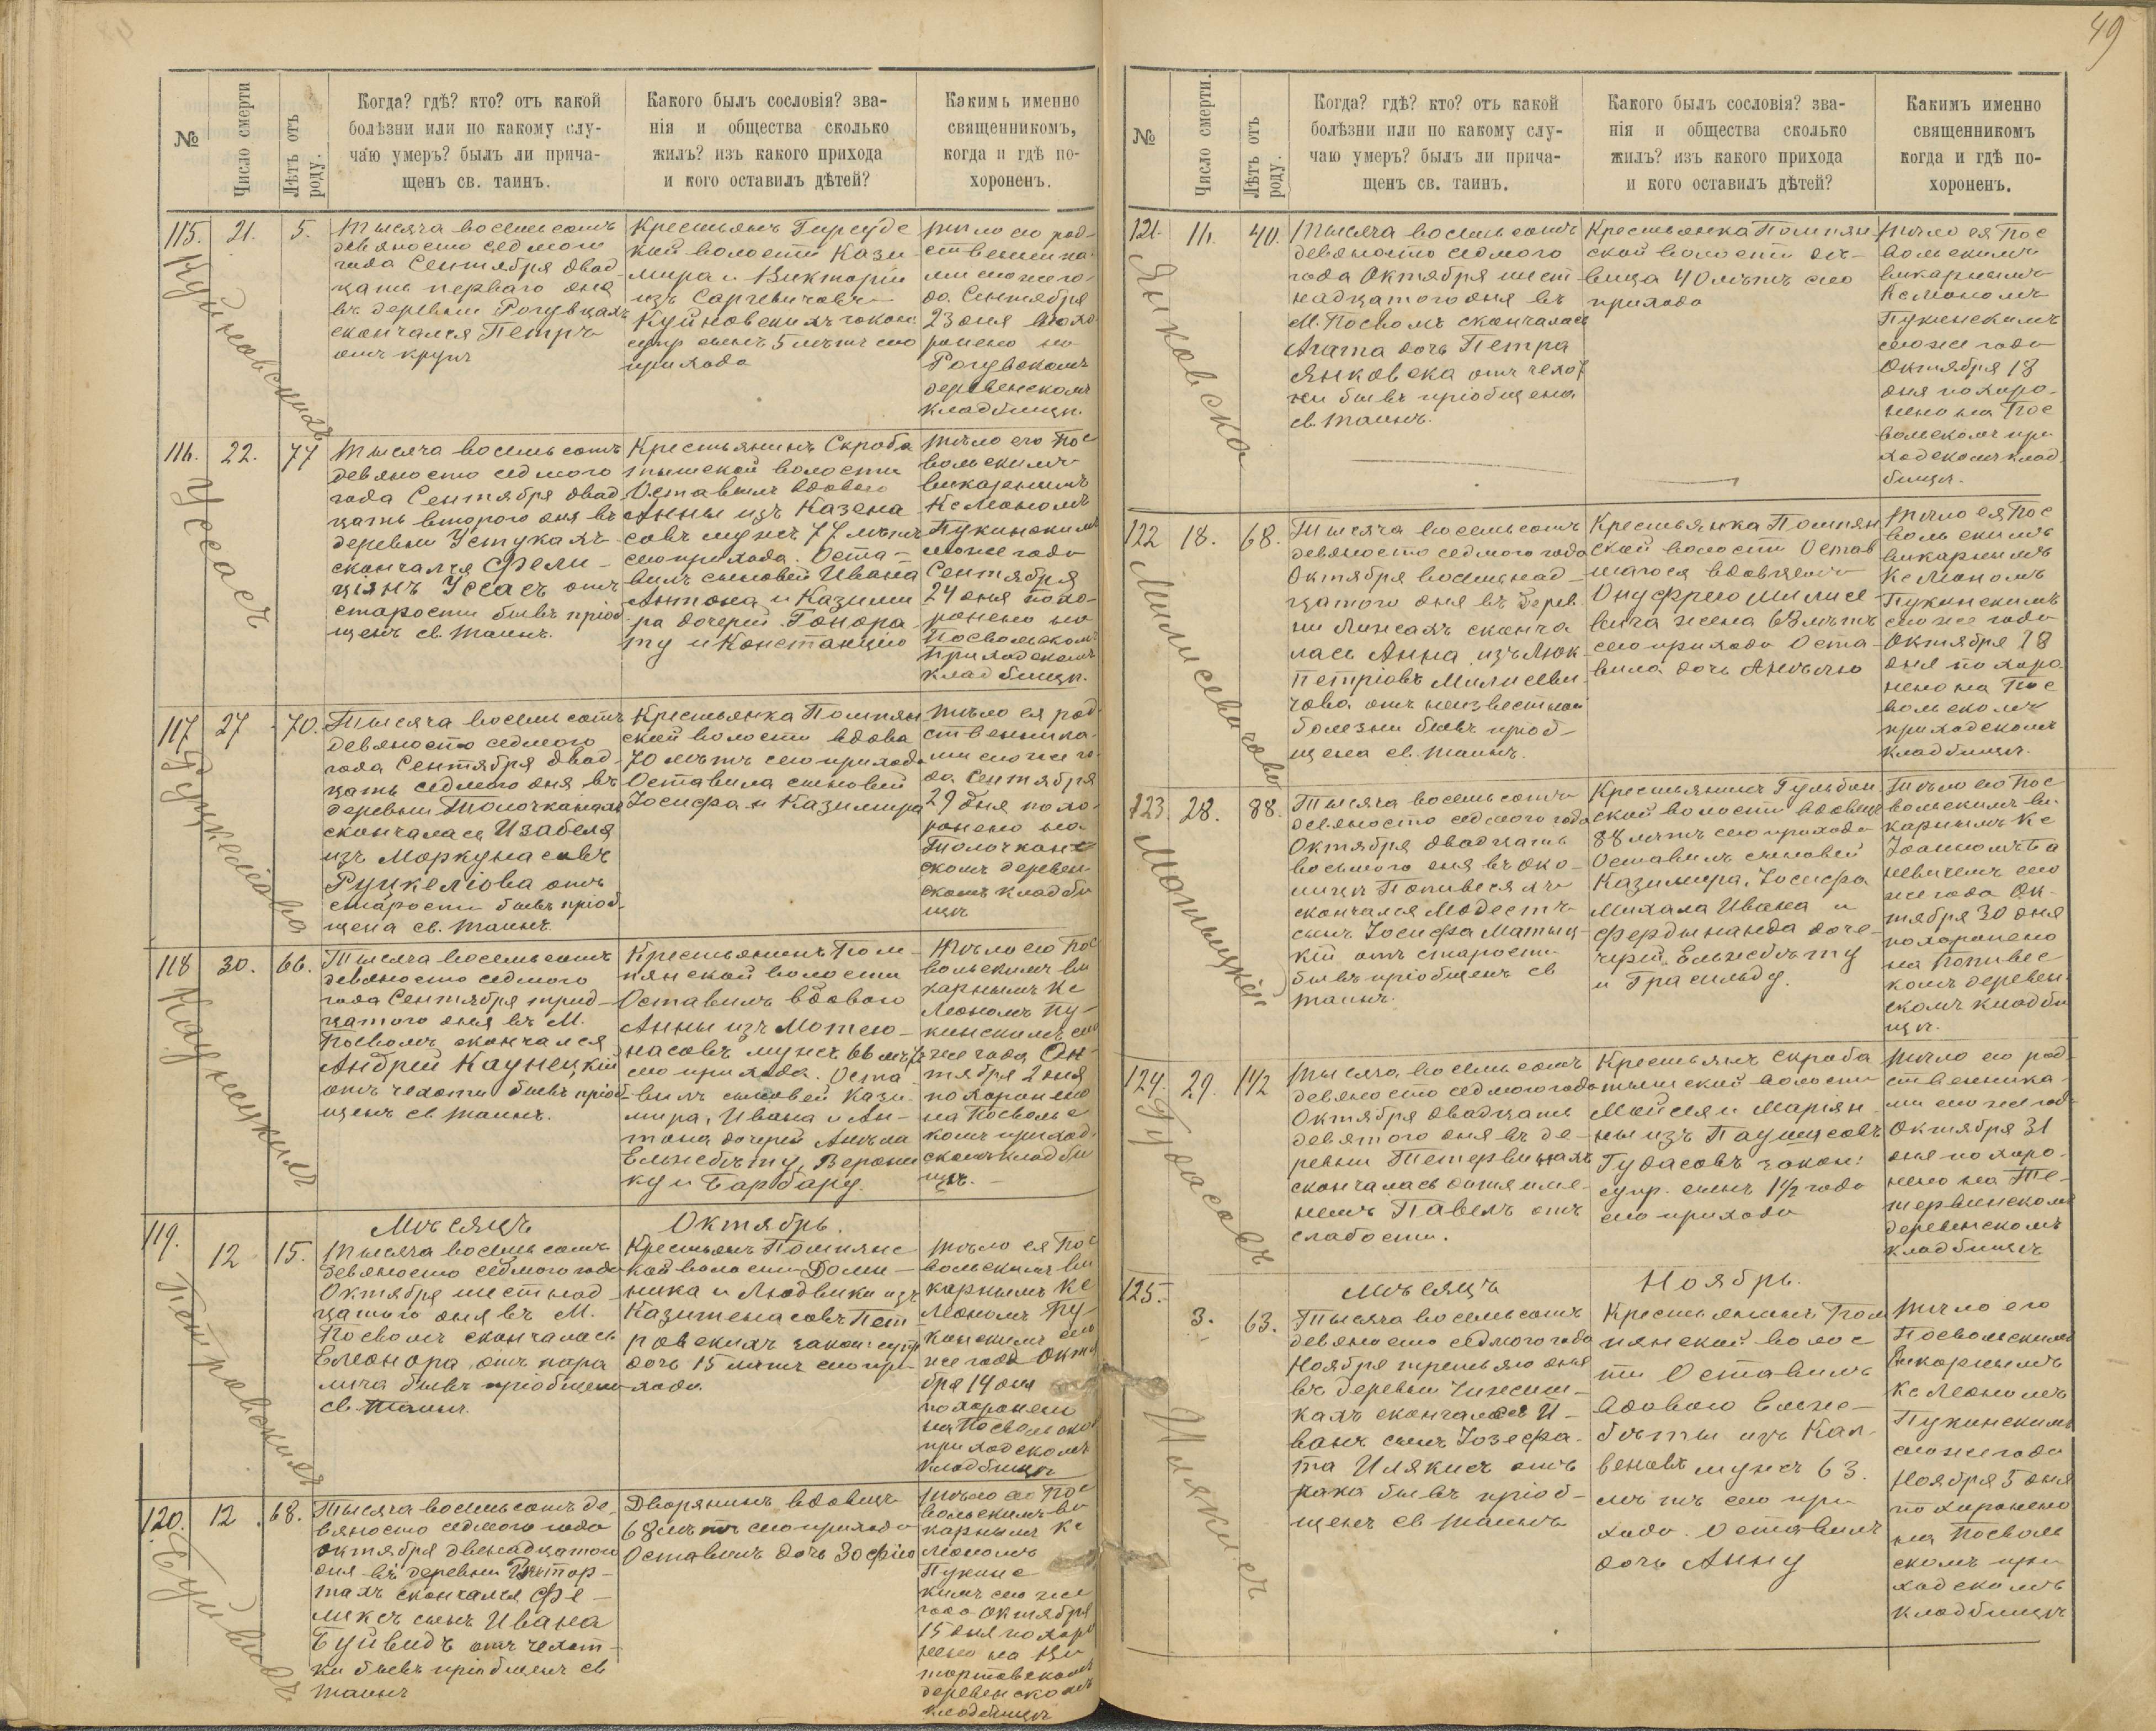 49
№
Число смерти
Лѣтъ отъ роду.
Когда? гдѣ? кто? отъ какой
болѣзни или по какому слу-
чаю умеръ? былъ ли прича-
щенъ св. таинъ.
Какого былъ сословія? зва-
нія и общества сколько
жилъ? изъ какого прихода
и кого оставилъ дѣтей?
Какимъ именно
священникомъ,
когда и гдѣ по-
хороненъ.
115.
21.
5.
Куйновскихъ
Тысяча восемьсотъ
девяносто седмого
года Сентября двад-
цать перваго дня
въ деревни Рогувцахъ
скончался Петръ
отъ крупъ
Крестьянъ
кой волости Кази-
мира и Викторіи
изъ Саргевичовъ
Куйновскихъ закон:
супр сынъ 5 лѣтъ сего
прихода
Тѣло его род-
ственника-
ми сего же го-
да Сентября
23 дня похо-
ронено на
Рогувскомъ
деревенскомъ
кладбищѣ.
116.
22.
77
Усасъ
Тысяча восемьсотъ
девяносто седмого
года Сентября двад-
цать второго дня въ
деревни Устукахъ
скончался Фели-
ціянъ Усасъ отъ
старости бывъ пріоб-
щенъ св. таинъ.
Крестьянинъ Скроба
тышской волости
Оставилъ вдового
Анны изъ Казена
совъ мужъ 77 лѣтъ
сего прихода. Оста-
вилъ сыновей Ивана
Антона и Казими
ра дочерей Гонора
ту и Констанцію
Тѣло его Пос
вольскимъ
викарнымъ
Кс Леономъ
Пукинскимъ
сего же года
Сентября
24 дня похо-
ронено на
Посвольскомъ
приходскомъ
кладбищѣ.
117
27
70.
Руцкеліова
Тысяча восемьсотъ
девяносто седмого
года Сентября двад-
цать седмого дня въ
деревни Толочканахъ
скончалася Изабеля
изъ Моркунасовъ
Руцкеліова отъ
старости бывъ пріоб-
щена св. таинъ.
Крестьянка Помпян
ской волости вдова
70 лѣтъ сего прихода
Оставила сыновей
Іосифа и Казимира
Тѣло ея род-
ственника-
ми сего же го-
да Сентября
29 дня похо-
ронено на
Толочкан-
скомъ деревен-
скомъ кладби
щѣ
118
30.
66.
Каунецкій
Тысяча восемьсотъ
девяносто седмого
года Сентября трид-
цатого дня въ М.
Посволѣ скончался
Андрей Каунецкій
отъ чехоты бывъ пріоб-
щенъ св таинъ.
Крестьянинъ Пом-
пянской волости
Оставилъ вдового
Анны изъ Мотею-
насовъ мужъ 66 лѣтъ
сего прихода. Оста-
вилъ сыновей Кази-
мира, Ивана и Ан-
тона дочерей Анелю
Ельжбету, Верони
ку и Барбару.
Тѣло его Пос
вольскимъ ви
карнымъ Кс
Леономъ Пу-
кинскимъ сего
же года Ок-
тября 2 дня
похоронено
на Посвольс
комъ приход-
скомъ кладби
щѣ.
119.
12
15.
Петровскихъ
Мѣсяцъ Октябрь.
Тысяча восемьсотъ
девяносто седмого года
Октября
цатого дня въ М.
Посволѣ скончалась
Елеонора отъ пара
лича бывъ пріобщена
св. таинъ.
Крестьянъ Помпянс
кой волости Доми-
ника и Людвики изъ
Казитенасовъ Пет-
ровскихъ закон: супр
дочь 15 лѣтъ сего при-
хода
Тѣло ея Пос
вольскимъ ви
карнымъ Кс
Леономъ Пу-
кинскимъ сего
же года Октя
бря 14 дня
похоронено
на Посвольском
приходскомъ
кладбищѣ
120.
12
68.
Буйвидъ
Тысяча восемьсотъ де-
вяносто седмого года
Октября двенадцатого
дня въ деревни
тахъ скончался Фе-
ликсъ сынъ Ивана
Буйвидъ отъ чехот-
ки бывъ пріобщенъ св
таинъ
Дворянинъ вдовецъ
68 лѣтъ сего прихода
Оставилъ дочь Зофію
Тѣло его Пос
вольскимъ ви
карнымъ Кс
Леономъ
Пукинс
кимъ сего же
года Октября
15 дня похоро
нено на
деревенскомъ
кладбищѣ
№
Число смерти.
Лѣтъ отъ роду.
Когда? гдѣ? кто? отъ какой
болѣзни или по какому слу-
чаю умеръ? былъ ли прича-
щенъ св. таинъ.
Какого былъ сословія? зва-
нія и общества сколько
жилъ? изъ какого прихода
и кого оставилъ дѣтей?
Какимъ именно
священникомъ
когда и гдѣ по-
хороненъ.
121.
16.
40.
Янковска
Тысяча восемьсотъ
девяносто седмого
года Октября шест
надцатого дня въ
М. Посволѣ скончалась
Агата дочь Петра
Янковска отъ чехот
ки бывъ пріобщена
св. таинъ.
Крестьянка Помпян
ской волости дѣ-
вица 40 лѣтъ сего
прихода
Тѣло ея Пос
вольскимъ
викарнымъ
Кс Леономъ
Пукинскимъ
сего же года
Октября 18
дня похоро-
нено на Пос
вольскомъ при
ходскомъ клад
бищѣ.
122
18.
68.
Милисевичова
Тысяча восемьсотъ
девяносто седмого года
Октября восемнад-
цатого дня въ дерев
ни Линсахъ сконча
лась Анна изъ Люк
петріовъ Милисеви-
чова отъ неизвестной
болезни бывъ пріоб-
щена св. таинъ.
Крестьянка Помпян
ской волости Остав
шагося вдовцемъ
Онуфрего Милисе
вича жена 68 лѣтъ
сего прихода Оста-
вила дочь Анелю
Тѣло ея Пос
вольскимъ
викарнымъ
Кс Леономъ
Пукинскимъ
сего же года
Октября 28
дня похоро
нено на Пос
вольскомъ
приходскомъ
кладбищѣ.
123.
28.
88.
Матыцкій
Тысяча восемьсотъ
девяносто седмого года
Октября двадцать
восьмого дня въ око-
лицѣ Попивесяхъ
скончался Модестъ
сынъ Іосифа Матыц-
кій отъ старости
бывъ пріобщенъ св
таинъ.
Крестьянинъ Гульбин
ской волости вдовецъ
88 лѣтъ сего прихода
Оставилъ сыновей
Казимира, Іосифа
Михала Ивана и
Фердынанда доче-
чрей Ельжбету
и Грасильду.
Тѣло его Пос
вольскимъ ви-
карнымъ Кс
Іоанномъ Ба
невичемъ сего
же года Ок-
тября 30 дня
похоронено
на Попивес
комъ деревен
скомъ кладби
щѣ.
124.
29.
1½
Гудасовъ
Тысяча восемьсотъ
девяносто седмого года
Октября двадцать
девятого дня въ де-
ревни Тетервинахъ
скончалась дитя име-
немъ Павелъ отъ
слабости.
Крестьянъ Скроба
тышской волости
Мойсея и Маріян
ны изъ Паушусовъ
Гудасовъ закон:
супр. сынъ 1½ года
сего прихода
Тѣло его род
ственника-
ми сего же года
Октября 31
дня похоро-
нено на Те-
тервинскомъ
деревенскомъ
кладбищѣ
125.
3.
63.
Илякисъ
Мѣсяцъ Ноябрь.
Тысяча восемьсотъ
девяносто седмого года
Ноября третьяго дня
въ деревни
кахъ скончался И-
ванъ сынъ Іозефа-
та Илякисъ отъ
рака бывъ пріоб-
щенъ св таинъ
Крестьянинъ Пом
пянской волос
ти Оставилъ
вдового Ельж-
беты изъ Кал-
веновъ мужъ 63
лѣтъ сего при
хода. Оставилъ
дочь Анну
Тѣло его
Посвольскимъ
викарнымъ
Кс Леономъ
Пукинскимъ
сего же года
Ноября 5 дня
похоронено
на Посволь
скомъ при
ходскомъ
кладбищѣ